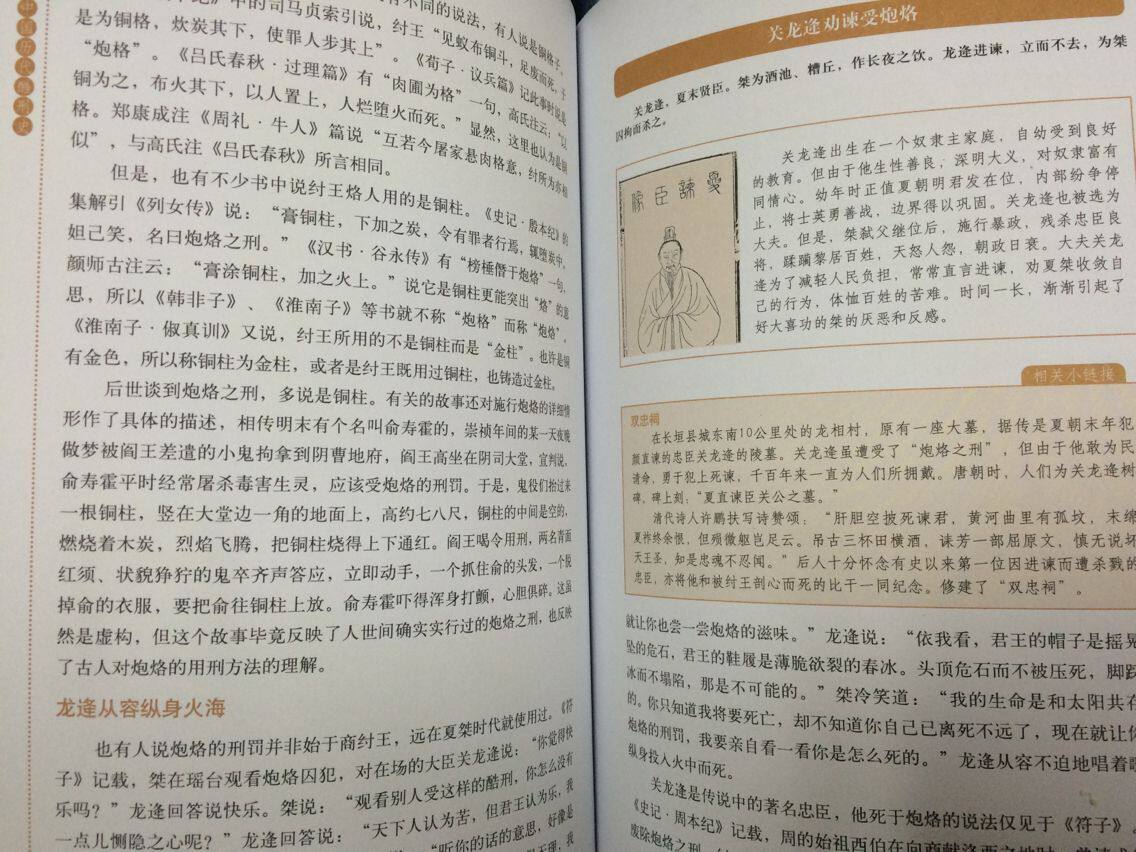 中国历代酷刑史
有不同的说法，有人说是铜格子。
中的司马贞索引说，纣王“见蚁布铜斗，足废而死，于
是为铜格，炊炭其下，使罪人步其上”。《荀子·议兵篇》记此事时说是
“炮格”。《吕氏春秋·过理篇》有“肉圃为格”一句，高氏注云：“以
铜为之，布火其下，以人置上，人烂堕火而死。”显然，这里也认为是铜
格。郑康成注《周礼·牛人》篇说“互若今屠家悬肉格意，纣所为亦相
似”，与高氏注《吕氏春秋》所言相同。
但是，也有不少书中说纣王烙人用的是铜柱。《史记·殷本纪》的
集解引《列女传》说：“膏铜柱，下加之炭，令有罪者行焉，辄堕炭中，
妲己笑，名曰炮烙之刑。”《汉书·谷永传》有“榜棰僭于炮烙”一句，
颜师古注云：“膏涂铜柱，加之火上。”说它是铜柱更能突出“烙”的意
思，所以《韩非子》、《淮南子》等书就不称“炮格”而称“炮烙”。
《淮南子·俶真训》又说，纣王所用的不是铜柱而是“金柱”。也许是铜
有金色，所以称铜柱为金柱，或者是纣王既用过铜柱，也铸造过金柱。
后世谈到炮烙之刑，多说是铜柱。有关的故事还对施行炮烙的详细情
形作了具体的描述，相传明末有个名叫俞寿霍的，崇祯年间的某一天夜晚
做梦被阎王差遣的小鬼拘拿到阴曹地府，阎王高坐在阴司大堂，宣判说，
俞寿霍平时经常屠杀毒害生灵，应该受炮烙的刑罚。于是，鬼役们抬过来
一根铜柱，竖在大堂边一角的地面上，高约七八尺，铜柱的中间是空的，
燃烧着木炭，烈焰飞腾，把铜柱烧得上下通红。阎王喝令用刑，两名青面
红须、状貌狰狞的鬼卒齐声答应，立即动手，一个抓住俞的头发，一个脱
掉俞的衣服，要把俞往铜柱上放。俞寿霍吓得浑身打颤，心胆俱碎。这虽
然是虚构，但这个故事毕竟反映了人世间确实实行过的炮烙之刑，也反映
了古人对炮烙的用刑方法的理解。
龙逄从容纵身火海
也有人说炮烙的刑罚并非始于商纣王，远在夏桀时代就使用过。《符
子》记载，桀在瑶台观看炮烙囚犯，对在场的大臣关龙逄说：“你觉得快
乐吗？”龙逄回答说快乐。桀说：“观看别人受这样的酷刑，你怎么没有
一点儿恻隐之心呢？”龙逄回答：“天下人认为苦，但君王认为乐，我
“听你的话的意思，好像是
关龙逄劝谏受炮烙
关龙逄，夏末贤臣。桀为酒池、糟丘，作长夜之饮。龙逄进谏，立而不去，为桀
囚拘而杀之。
忧谏臣像
关龙逄出生在一个奴隶主家庭，自幼受到良好
的教育。但由于他生性善良，深明大义，对奴隶富有
同情心。幼年时正值夏朝明君发在位，内部纷争停
止，将士英勇善战，边界得以巩固。关龙逄也被选为
大夫。但是，桀弑父继位后，施行暴政，残杀忠臣良
将，蹂躏黎居百姓，天怒人怨，朝政日衰。大夫关龙
逄为了减轻人民负担，常常直言进谏，劝夏桀收敛自
己的行为，体恤百姓的苦难。时间一长，渐渐引起了
好大喜功的桀的厌恶和反感。
相关小链接
双忠祠
在长垣县城东南10公里处的龙相村，原有一座大墓，据传是夏朝末年犯
颜直谏的忠臣关龙逄的陵墓。关龙逄虽遭受了“炮烙之刑”，但由于他敢为民
请命，勇于犯上死谏，千百年来一直为人们所拥戴。唐朝时，人们为关龙逄树
碑，碑上刻：“夏直谏臣关公之墓。”
清代诗人许鹏扶写诗赞颂：“肝胆空披死谏君，黄河曲里有孤坟，末缔
夏祚终余恨，但殒微躯岂足云。吊古三杯田横酒，诔芳一部屈原文，慎无说坏
天王圣，知是忠魂不忍闻。”后人十分怀念有史以来第一位因进谏而遭杀戮的
忠臣，亦将他和被纣王剖心而死的比干一同纪念。修建了“双忠祠”。
就让你也尝一尝炮烙的滋味。”龙逄说：“依我看，君王的帽子是摇晃
坠的危石，君王的鞋履是薄脆欲裂的春冰。头顶危石而不被压死，脚踩
冰而不塌陷，那是不可能的。”桀冷笑道：“我的生命是和太阳共存
的。你只知道我将要死亡，却不知道你自己已离死不远了，现在就让你
炮烙的刑罚，我要亲自看一看你是怎么死的。”龙逄从容不迫地唱着歌
纵身投入火中而死。
关龙逄是传说中的著名忠臣，他死于炮烙的说法仅见于《符子》。
《史记·周本纪》记载，周的始祖西伯在向商献洛西之地时，曾请求
废除炮烙之刑